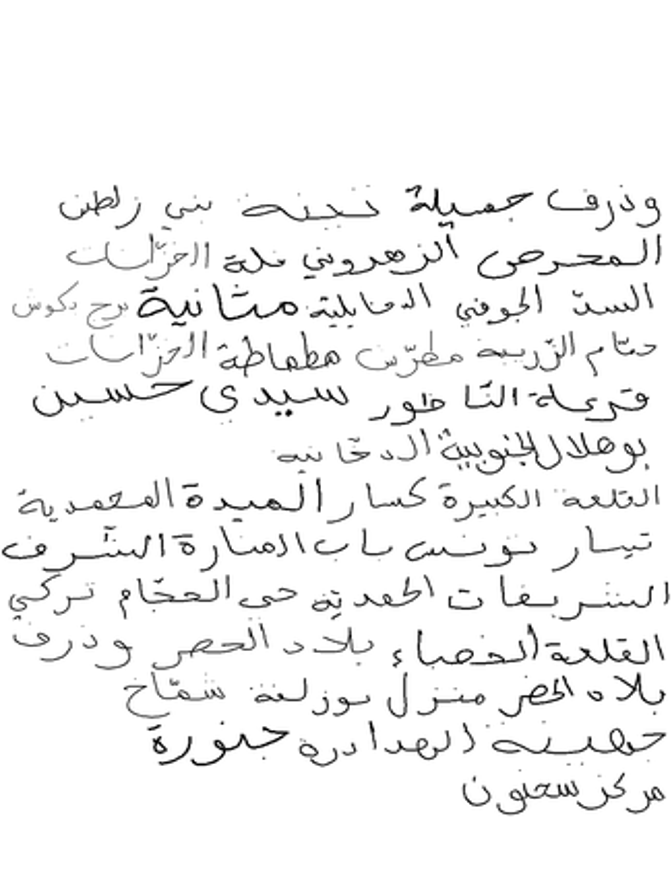 وذرف جميلة نبينة بني زلطن
المحرص الزهروني فلة الخزّانات
السدّ الجوفي المخايلية مثانية برج بكوش
حمّام الزريبة مطرّش مطماطة الخزّانات
قرعة النّاظور سيدي حسين
بوهلال الجنوبية الدخّانية
القلعة الكبيرة كسار الميدة المحمدية
تيسار تونس باب المنارة الشّرف
الشريفات الحمديّة حي الحجّام تركي
القلعة الخصباء بلاد الحضر وذرف
بلاد الحضر منزل بوزلفة شمّاخ
جهينة الهدادرة جنورة
مركز سحنون